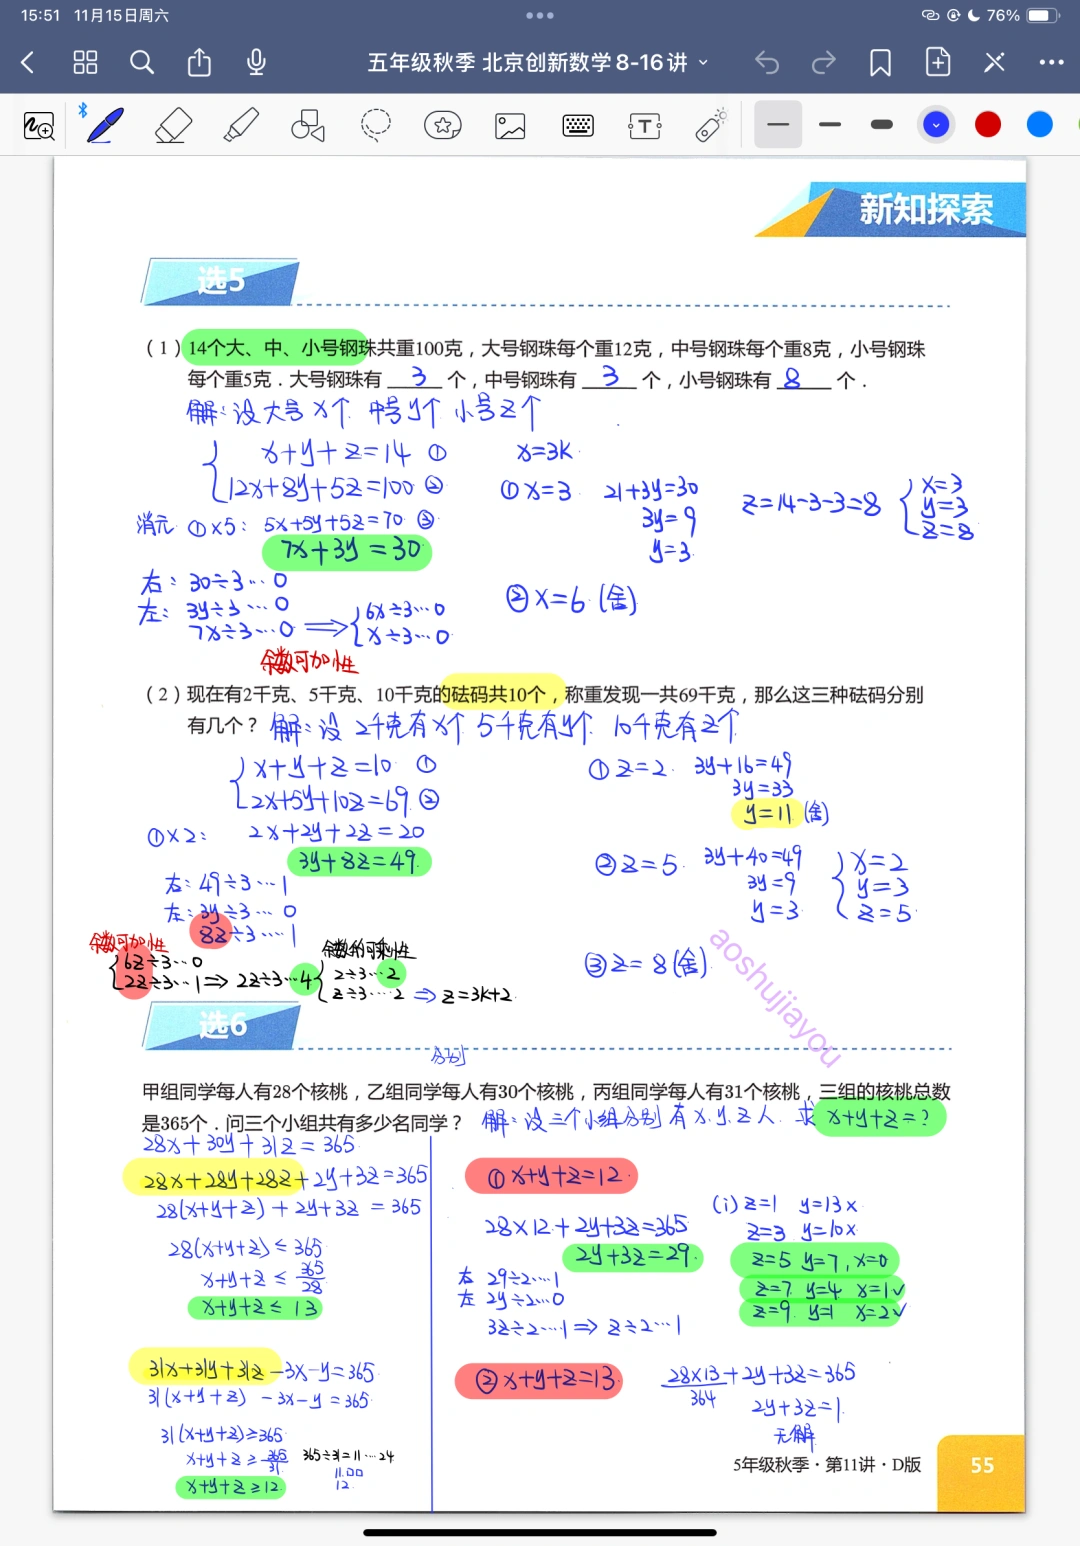 15:51 11月15日周六
76%
五年级秋季 北京创新数学 8-16 讲
新知探索
选5
（1）14个大、中、小号钢珠共重100克，大号钢珠每个重12克，中号钢珠每个重8克，小号钢珠
每个重5克．大号钢珠有 3 个，中号钢珠有 3 个，小号钢珠有 8 个．
解：设大号x个 中号y个 小号z个
x+y+z=14 ①
12x+8y+5z=100 ②
消元 ①×5： 5x+5y+5z=70 ③
7x+3y=30
右：30÷3…0
左：3y÷3…0
7x÷3…0 ⟹ 6x÷3…0
x÷3…0
余数可加性
x=3k
①x=3 21+3y=30
3y=9
y=3
z=14-3-3=8
x=3
y=3
z=8
②x=6（舍）
（2）现在有2千克、5千克、10千克的砝码共10个，称重发现一共69千克，那么这三种砝码分别
有几个？ 解：设 2千克有x个 5千克有y个 10千克有z个
x+y+z=10 ①
2x+5y+10z=69 ②
①×2： 2x+2y+2z=20
3y+8z=49
右：49÷3…1
左：3y÷3…0
8z÷3…1
余数可加性
6z÷3…0
2z÷3…1 ⟹ 2z÷3…4
余数的可乘性
2÷3…2
z÷3…2 ⟹ z=3k+2
①z=2 3y+16=49
3y=33
y=11（舍）
②z=5 3y+40=49
3y=9
y=3
x=2
y=3
z=5
③z=8（舍）
aoshujiayou
选6
分别
甲组同学每人有28个核桃，乙组同学每人有30个核桃，丙组同学每人有31个核桃，三组的核桃总数
是365个．问三个小组共有多少名同学？ 解：设三个小组分别有x.y.z人 求 x+y+z=?
28x+30y+31z=365
28x+28y+28z+2y+3z=365
28(x+y+z)+2y+3z=365
28(x+y+z)≤365
x+y+z≤365/28
x+y+z≤13
31x+31y+31z-3x-y=365
31(x+y+z)-3x-y=365
31(x+y+z)≥365
x+y+z≥365/31 365÷31=11…24
11.□□
12
x+y+z≥12
①x+y+z=12
28×12+2y+3z=365
2y+3z=29
右 29÷2…1
左 2y÷2…0
3z÷2…1⟹z÷2…1
(i)z=1 y=13 x
z=3 y=10 x
z=5 y=7，x=0
z=7 y=4 x=1✓
z=9 y=1 x=2✓
②x+y+z=13
28×13+2y+3z=365
364
2y+3z=1
无解
5年级秋季·第11讲·D版 55